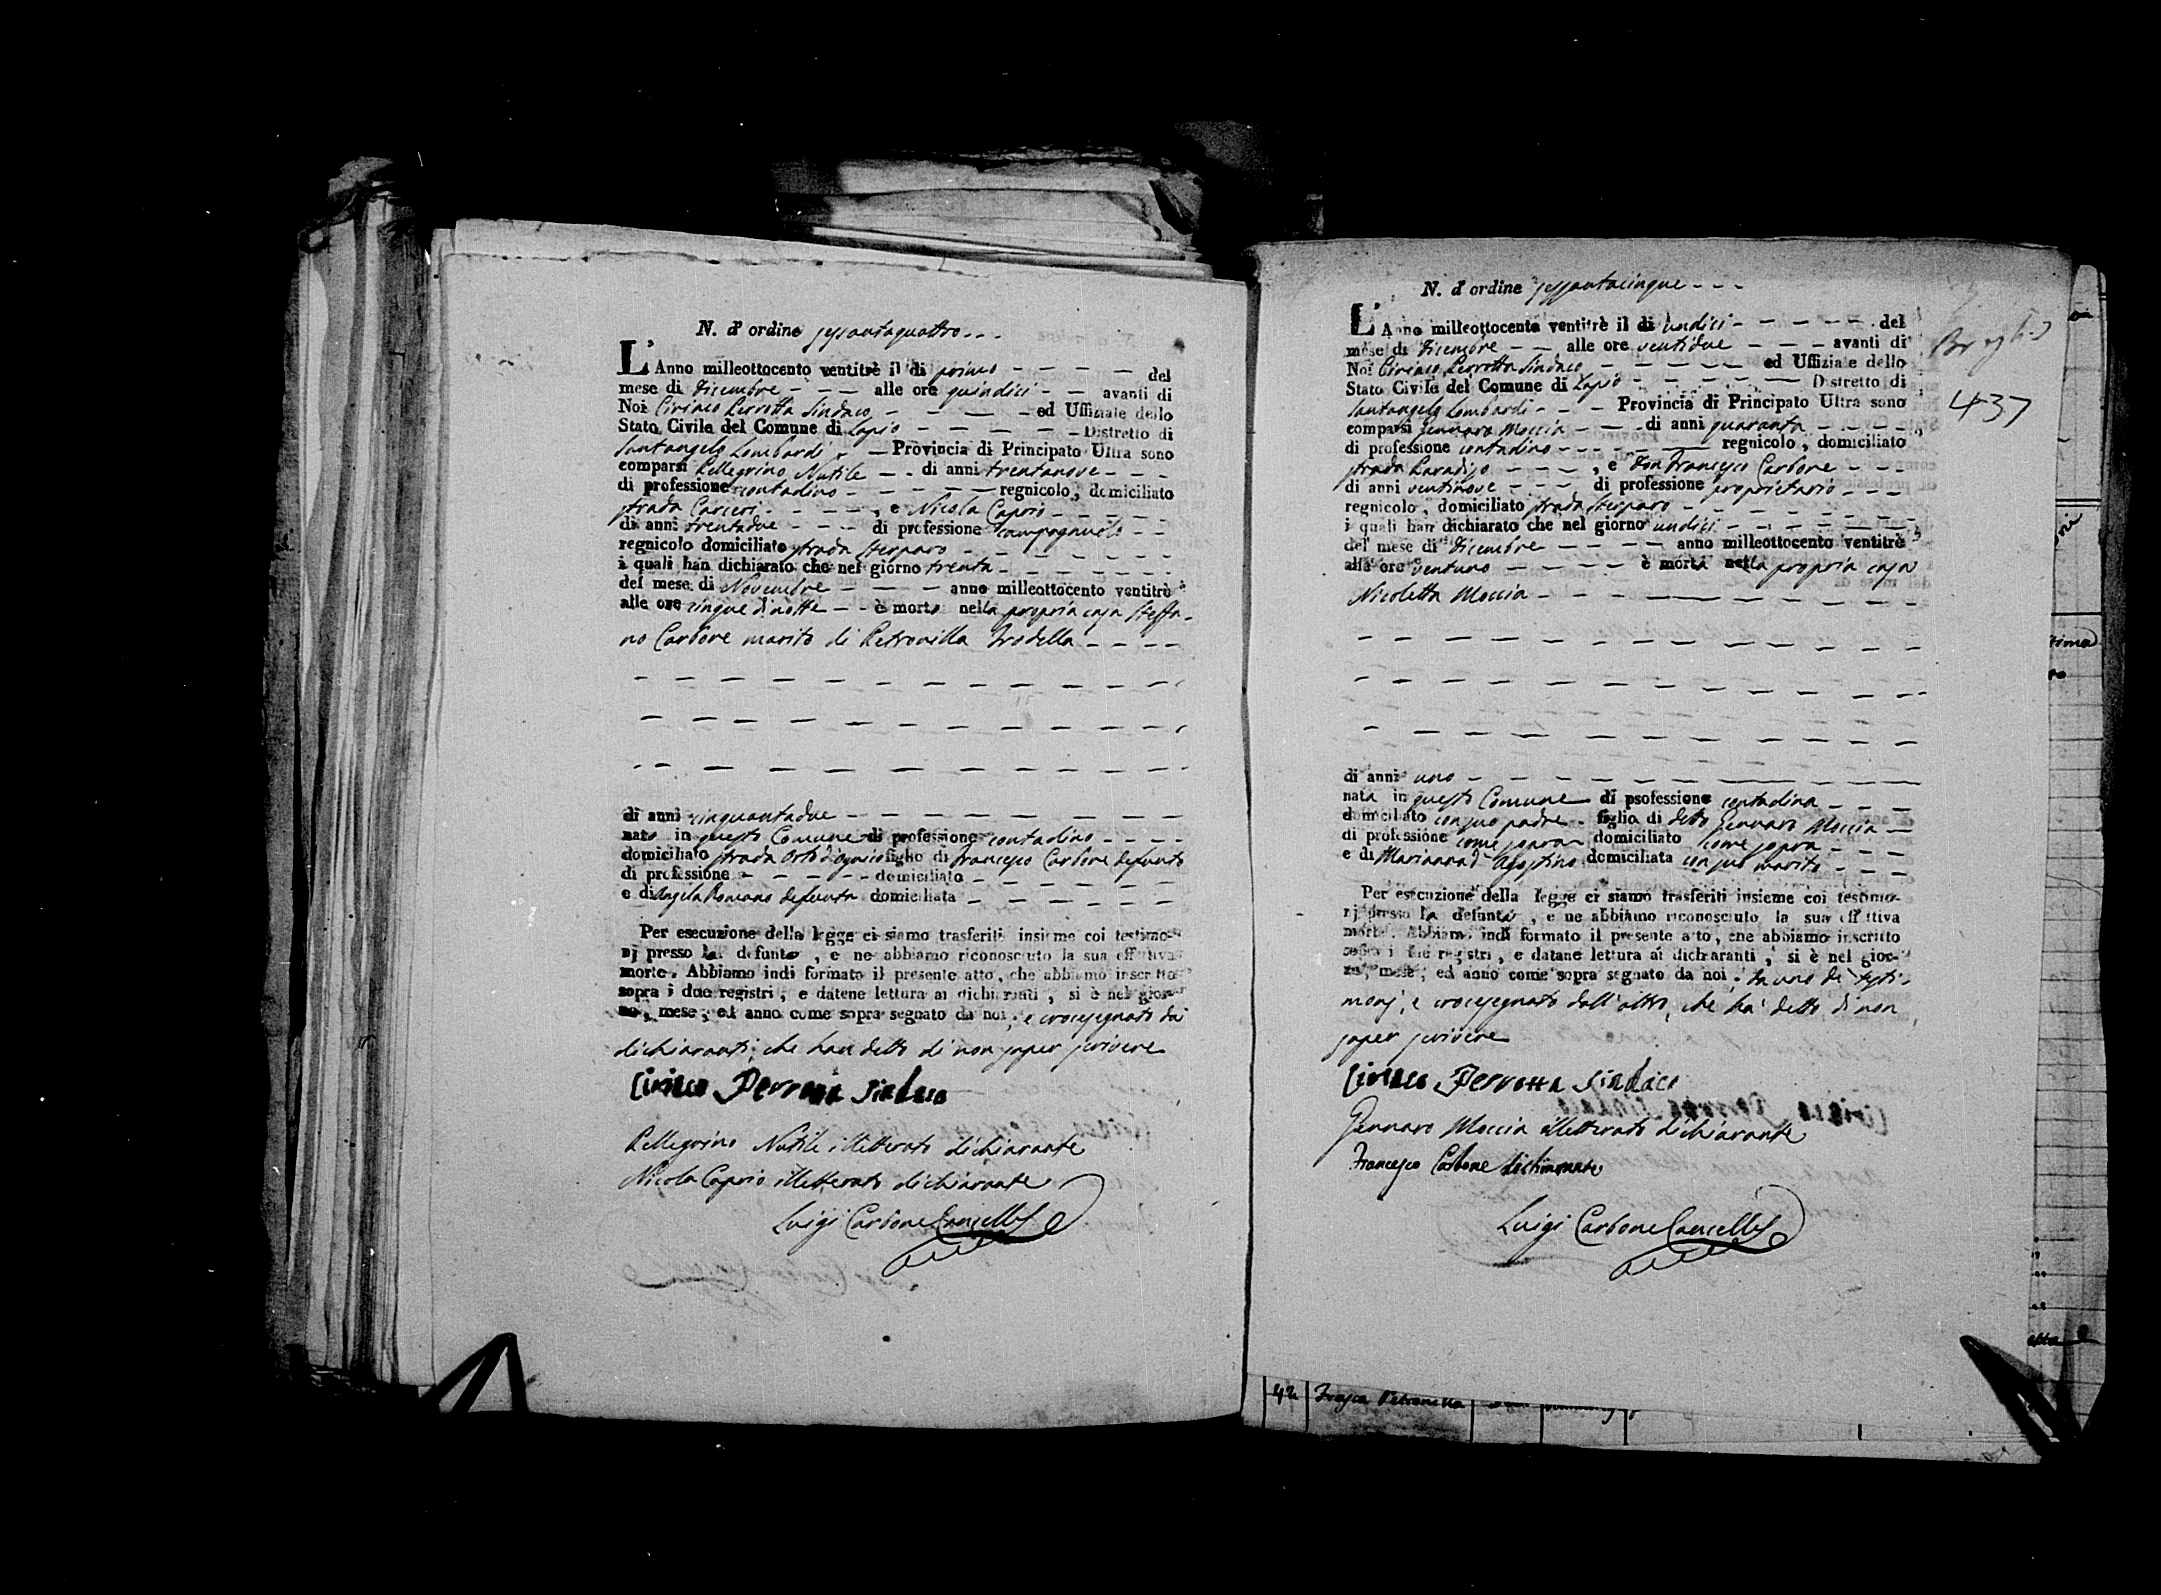 N. d' ordine sessantaquattro
L' Anno milleottocento ventitrè il dì primo del
mese di Dicembre alle ore quindici avanti di
Noi Ciriaco Perrotta Sindaco ed Uffiziale dello
Stato Civile del Comune di Lapio Distretto di
Santangelo Lombardi Provincia di Principato Ultra sono
comparsi Pellegrino Nutile di anni trentanove
di professione contadino regnicolo, domiciliato
strada Carceri, e Nicola Caprio
di anni trentadue di professione campagnuolo
regnicolo domiciliato strada Sterparo
i quali han dichiarato che nel giorno trenta
del mese di Novembre anno milleottocento ventitrè
alle ore cinque di notte è morto nella propria casa Steffa-
no Carbone marito di Petronilla Trodella
di anni cinquantadue
nato in questo Comune di professione contadino
domiciliato strada figlio di Francesco Carbone defunto
di professione domiciliato
e di Angela Romano defunta domiciliata
Per esecuzione della legge ci siamo trasferiti insieme coi testimo-
nj presso il defunto, e ne abbiamo riconosciuto la sua effettiva
morte. Abbiamo indi formato il presente atto, che abbiamo inscritto
sopra i due registri, e datene lettura ai dichiaranti, si è nel gior-
no, mese, ed anno come sopra segnato da noi, e crocesegnato dai
dichiaranti, che han detto di non saper scrivere
Ciriaco Perrotta Sindaco
Pellegrino Nutile illetterato dichiarante
Nicola Caprio illetterato dichiarante
Luigi Carbone Cancelle
N. d' ordine sessantacinque
L' Anno milleottocento ventitrè il dì undici del
mese di Dicembre alle ore ventidue avanti di
Noi Ciriaco Perrotta Sindaco ed Uffiziale dello
Stato Civile del Comune di Lapio Distretto di
Santangelo Lombardi Provincia di Principato Ultra sono
comparsi Gennaro Moccia di anni quaranta
di professione contadino regnicolo, domiciliato
strada Paradiso, e Don Francesco Carbone
di anni ventinove di professione proprietario
regnicolo, domiciliato strada Sterparo
i quali han dichiarato che nel giorno undici
del mese di Dicembre anno milleottocento ventitrè
alle ore ventuno è morta nella propria casa
Nicoletta Moccia
di anni uno
nata in questo Comune di psofessione contadina
domiciliato con suo padre figlio di detto Gennaro Moccia
di professione come sopra domiciliato come sopra
e di Marianna d'Agostino domiciliata con suo marito
Per esecuzione della legge ci siamo trasferiti insieme coi testimo-
nj presso la defunta, e ne abbiamo riconosciuto la sua effettiva
morte. Abbiamo indi formato il presente atto, che abbiamo inscritto
sopra i due registri, e datane lettura ai dichiaranti, si è nel gior-
no, mese, ed anno come sopra segnato da noi, da uno de' testi-
monj, e crocesegnato dall' altro, che ha detto di non
saper scrivere
Ciriaco Perrotta Sindaco
Gennaro Moccia illetterato dichiarante
Francesco Carbone dichiarante
Luigi Carbone Cancelle
437
42 Petronilla